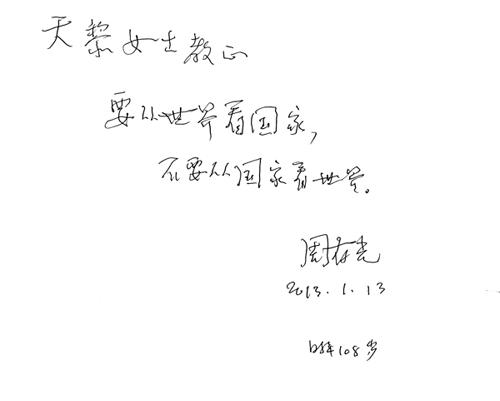 天黎女士教正
要从世界看国家，
不要从国家看世界。
周有光
2013.1.13
时年108岁